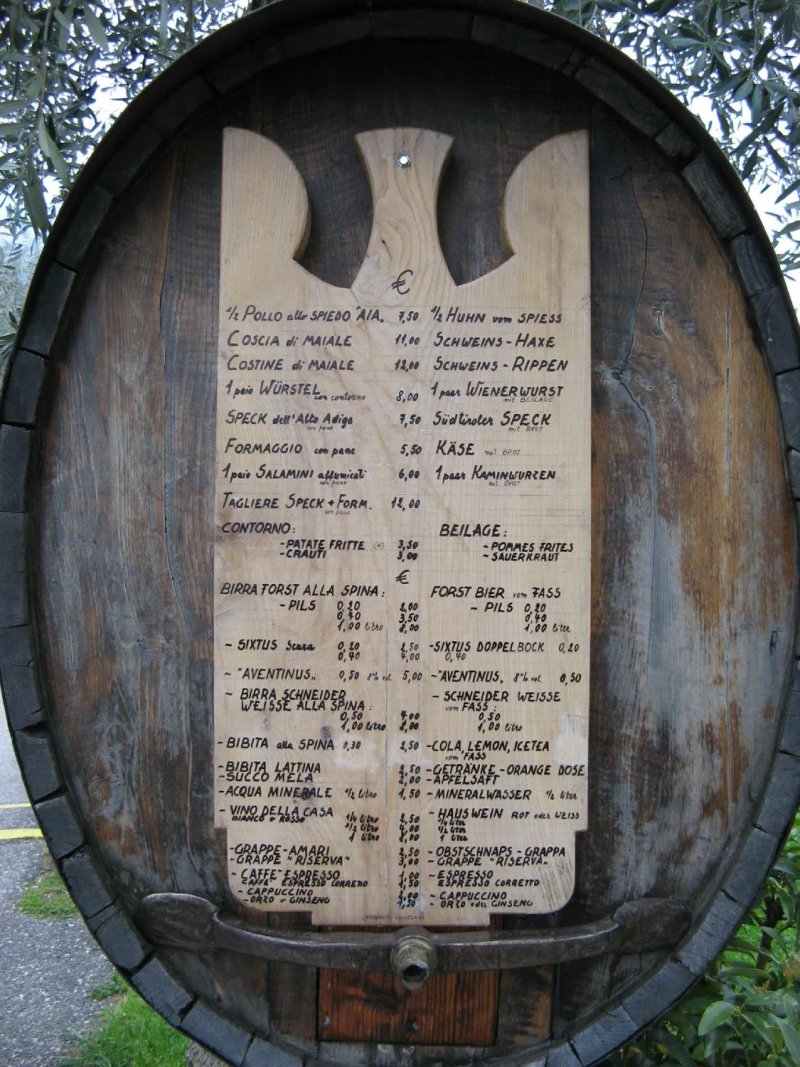 €
½ POLLO allo SPIEDO "AIA" 7,50 ½ HUHN vom SPIESS
COSCIA di MAIALE 11,00 SCHWEINS-HAXE
COSTINE di MAIALE 12,00 SCHWEINS-RIPPEN
1 paio WÜRSTEL con contorno 8,00 1 paar WIENERWURST mit BEILAGE
SPECK dell'Alto Adige con pane 7,50 Südtiroler SPECK mit BROT
FORMAGGIO con pane 5,50 KÄSE mit BROT
1 paio SALAMINI affumicati con pane 6,00 1 paar KAMINWURZEN mit BROT
TAGLIERE SPECK + FORM. con pane 12,00
CONTORNO: BEILAGE:
-PATATE FRITTE 3,50 -POMMES FRITES
-CRAUTI 3,00 -SAUERKRAUT
€
BIRRA FORST ALLA SPINA: FORST BIER vom FASS
-PILS 0,20 2,00 -PILS 0,20
0,40 3,50 0,40
1,00 litro 8,00 1,00 liter
-SIXTUS scura 0,20 2,50 -SIXTUS DOPPELBOCK 0,20
0,40 4,00 0,40
-"AVENTINUS" 0,50 8% vol. 5,00 -"AVENTINUS" 8% vol. 0,50
-BIRRA SCHNEIDER -SCHNEIDER WEISSE
WEISSE ALLA SPINA: vom FASS:
0,50 4,00 0,50
1,00 litro 8,00 1,00 liter
-BIBITA alla SPINA 0,30 2,50 -COLA, LEMON, ICETEA
vom FASS
-BIBITA LATTINA 2,50 -GETRÄNKE-ORANGE DOSE
-SUCCO MELA 2,00 -APFELSAFT
-ACQUA MINERALE ½ litro 1,50 -MINERALWASSER ½ liter
-VINO DELLA CASA -HAUSWEIN ROT oder WEISS
BIANCO o ROSSO ¼ litro 2,50 ¼ liter
½ litro 4,00 ½ liter
1 litro 8,00 1 liter
-GRAPPE-AMARI 2,50 -OBSTSCHNAPS-GRAPPA
-GRAPPE "RISERVA" 3,00 -GRAPPE "RISERVA"
-CAFFE' ESPRESSO 1,00 -ESPRESSO
CAFFE' ESPRESSO CORRETTO 1,50 ESPRESSO CORRETTO
-CAPPUCCINO -CAPPUCCINO
-ORZO o GINSENG 1,50 -ORZO oder GINSENG